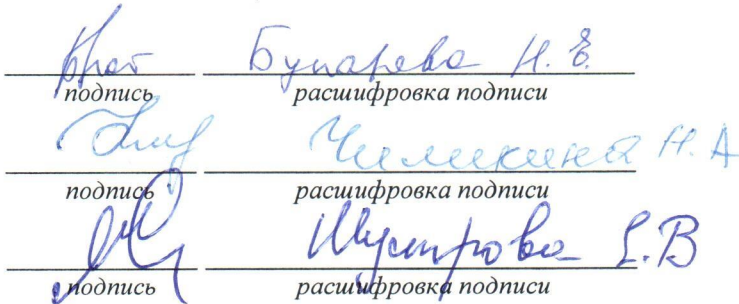 Бунарева Н. Е.
подпись расшифровка подписи
Чиликина Н. А
подпись расшифровка подписи
Шустрова Е. В
подпись расшифровка подписи